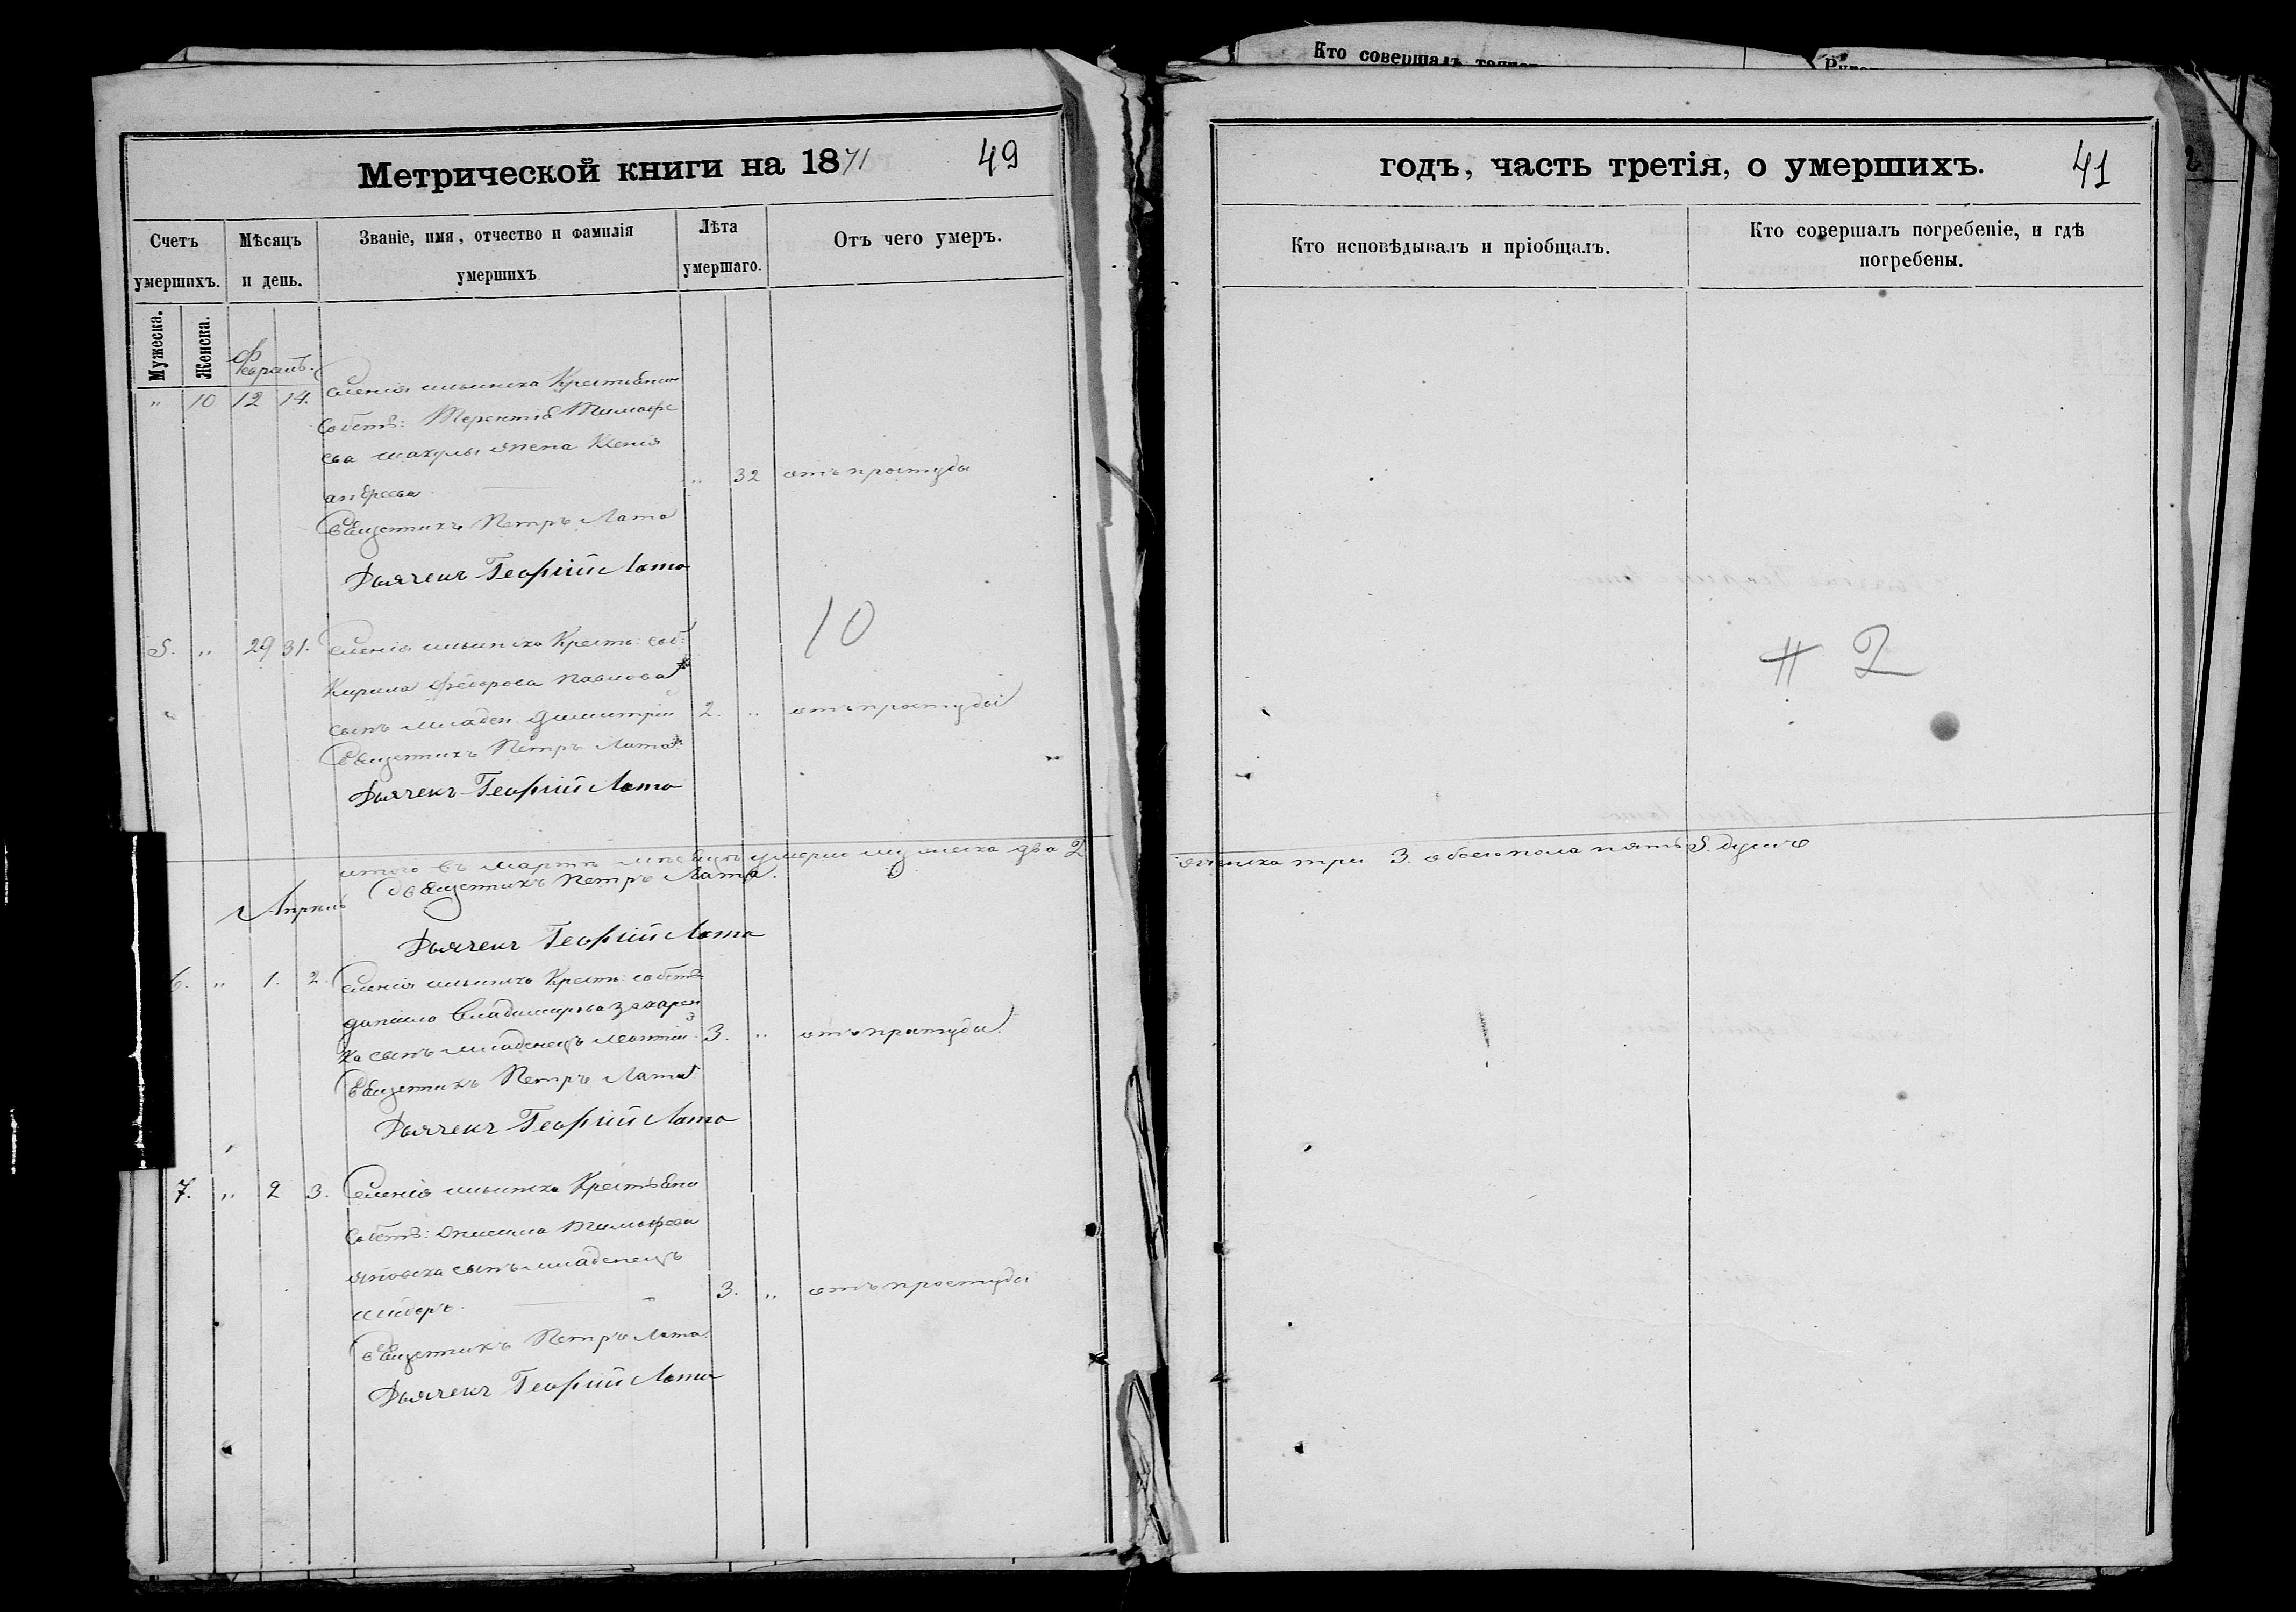 Кто совершалъ
Метрической книги на 1871
49
Счетъ умершихъ.
Мѣсяцъ и день.
Званіе, имя, отчество и фамилія умершихъ
Лѣта умершаго.
Отъ чего умеръ.
Мужеска.
Женска.
„ 10 12 14. Селенія Крестьянин
Собств: Терентія Тимофе
ева жена Ксенія
андреева „ 32 отъ простуды
Священникъ Петръ Лата
Дьячекъ Георгій Лата
10
5. „ 29 31. Селенія Крестъ: соб:
Кирила Федорова Павлова
сынъ младен: Димитрій 2. „ отъ простуды
Священникъ Петръ Лата
Дьячекъ Георгій Лата
итого въ Марте месяце умерло мужеска два 2
Священникъ Петръ Лата.
Апрель
Дьячекъ Георгій Лата
6. „ 1. 2. Селенія Крестъ: собств
данила Владимирова захарен
ка сынъ младенецъ Леонтій 3. „ отъ простуды
Священникъ Петръ Лата
Дьячекъ Георгій Лата
7. „ 2 3. Селенія Крестьяни
Собств: Тимофеева
сынъ младенецъ
3. „ отъ простуды
Священникъ Петръ Лата
Дьячекъ Георгій Лата
годъ, часть третія, о умершихъ.
41
Кто исповѣдывалъ и пріобщалъ.
Кто совершалъ погребеніе, и гдѣ погребены.
# 2
женска три 3. обоего пола пять 5. душъ